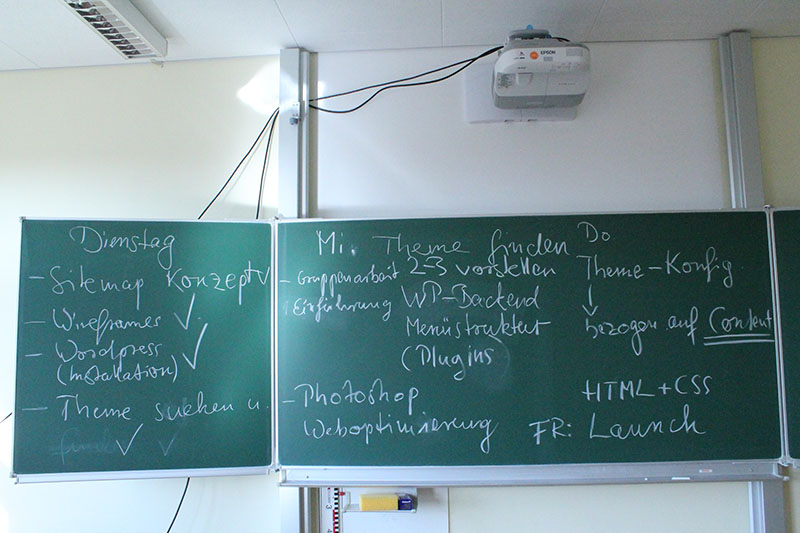 Dienstag
- Sitemap Konzept √
- Wireframes √
- Wordpress √
(Installation)
- Theme suchen u.
√ √
Mi Theme finden
- Gruppenarbeit 2-3 vorstellen
Einführung WP-Backend
Menüstruktur
(Plugins
- Photoshop
Weboptimierung
Do
Theme-Konfig
↓
bezogen auf Content
HTML+CSS
FR: Launch
EPSON